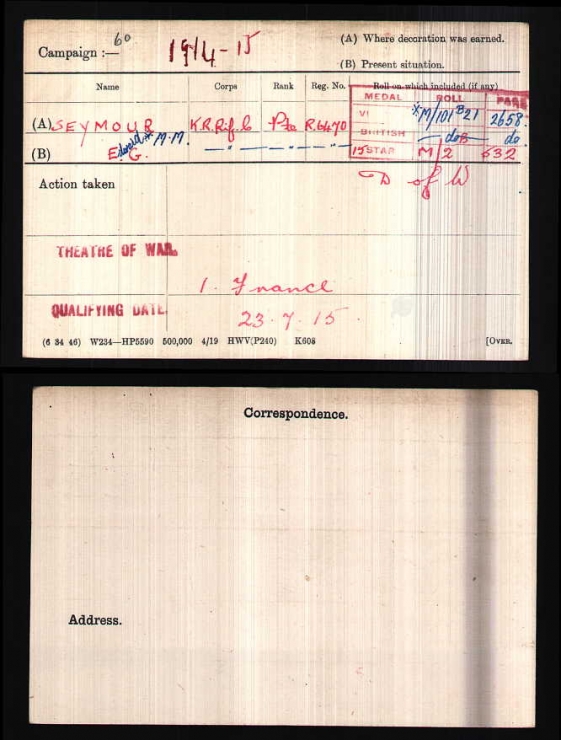 60
Campaign :— 1914-15
(A) Where decoration was earned.
(B) Present situation.
Name Corps Rank Reg. No. Roll on which included (if any)
MEDAL ROLL PAGE
(A) SEYMOUR K.R.Rif.C Pte R.6470 VI *M/101 B21 2658
M.M. BRITISH — do B — do
(B) E. G. — " — — " — — " — 15 STAR M/2 632
Action taken D of W
THEATRE OF WAR.
1. France
QUALIFYING DATE.
23.7.15.
(6 34 46) W234—HP5590 500,000 4/19 HWV(P240) K608 [OVER.
Correspondence.
Address.